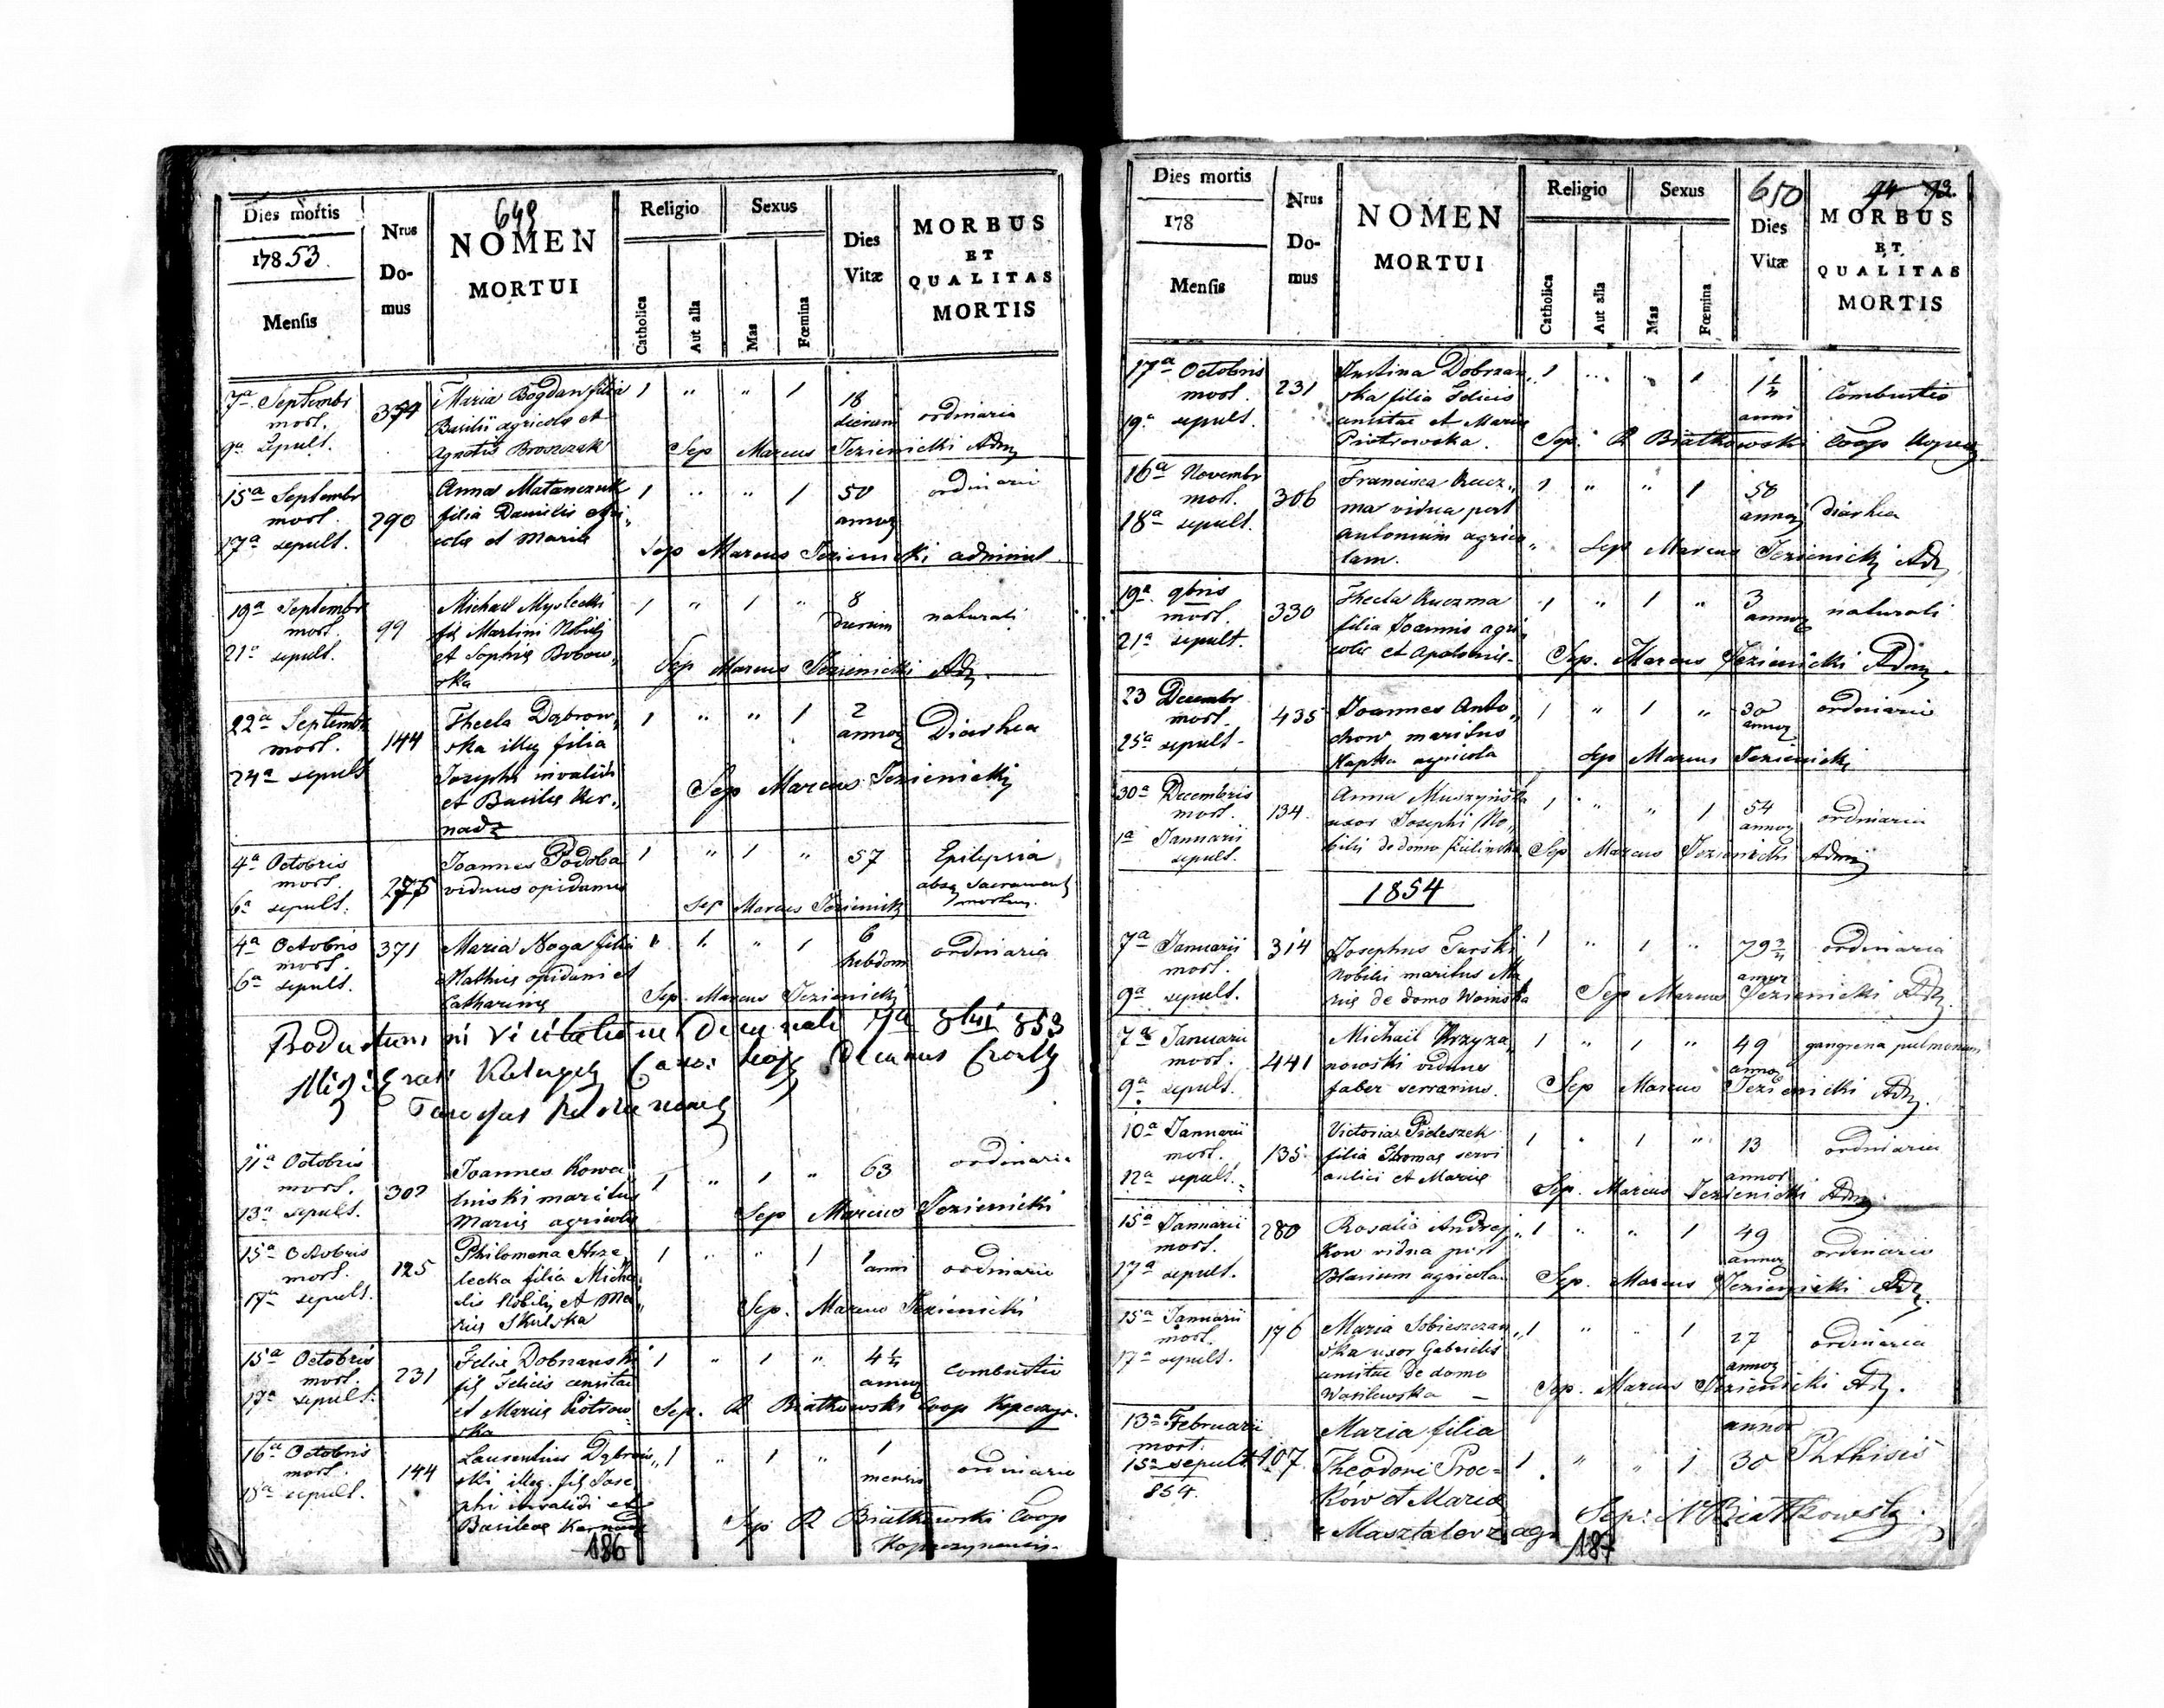 649
Dies mortis
17853.
Mensis
Nrus
Do-
mus
NOMEN
MORTUI
Religio
Catholica
Aut alia
Sexus
Mas
Fœmina
Dies
Vitæ
MORBUS
ET
QUALITAS
MORTIS
7a Septembr
mort.
9a Sepult.
374
Maria Bogdan filia
Basilii agricolæ et
Agnetis Broszczak
1 " " 1
18
dierum
ordinaria
Sep Marcus Jezienicki Adm
15a Septembr
mort.
17a sepult.
290
Anna Matanczuk
filia Danielis Agri„
colæ et Mariæ
1 " " 1
50
annoz
ordinaria
Sep Marcus Jezienicki administ
19a Septembr
mort.
21a sepult.
99
Michael Myslecki
fil Martini Nobilis
et Sophiæ Bobow„
ska
1 " 1 "
8
dierum
naturali
Sep Marcus Jezienicki Adm.
22a Septembr
mort.
24a sepult
144
Thecla Dąbrow„
ska illeg filia
Josephi invalidi
et Basiliæ Ker„
nadz
1 " " 1
2
annoz
Diarhea
Sep Marcus Jezienicki
4a Octobris
mort.
6a sepult.
275
Joannes Podoba
viduus opidanus
1 " 1 "
57
Epilepsia
absq Sacrament
mortuus.
Sep Marcus Jezienicki
4a Octobris
mort.
6a sepult.
371
Maria Noga filia
Mathiæ opidani et
Catharinæ
1 1. " 1
6
hebdom
ordinaria
Sep. Marcus Jezienicki
Productum in Visitatione Decanali 853
11a Octobris
mort.
13a sepult.
302
Joannes Kowa
linski maritus
Mariæ agricola
1 " 1 "
63
ordinaria
Sep Marcus Jezienicki
15a Octobris
mort.
17a sepult.
125
Philomena Strze„
lecka filia Micha
elis Nobilis et Ma„
riæ Skulska
1 " " 1
1
anni
ordinaria
Sep. Marcus Jezienicki
15a Octobris
mort.
17a sepult.
231
Felix Dobrzanski
fil Felicis censitae
et Mariæ Piotrow„
ska
1 " 1 "
4½
annoz
combustio
Sep. R Białkowski Coop Kopeczyn.
16a Octobris
mort.
18a sepult.
144
Laurentius Dąbrow„
ski illeg. fil Jose
phi invalidi et
Basileæ Kernadz
1 " 1 "
1
mensis
ordinaria
Sep R Białkowski Coop
Kopeczynensis.
186
Dies mortis
178
Mensis
Nrus
Do-
mus
NOMEN
MORTUI
Religio
Catholica
Aut alia
Sexus
Mas
Fœmina
650
Dies
Vitæ
94 92.
MORBUS
ET
QUALITAS
MORTIS
17a Octobris
mort.
19a sepult.
231
Justina Dobrzan„
ska filia Felicis
censitae et Mariæ
Piotrowska.
1 " " 1
1½
anni
Combustio
Sep. R Białkowski Coop Kopecz.
16a Novembr
mort.
18a sepult.
306
Francisca Kucz„
ma vidua post
Antonium agrico„
lam.
1 " " 1
58
annoz
diarhea
Sep Marcus Jezienicki Adm
19a 9bris
mort.
21a sepult.
330
Thecla Kuczma
filia Joannis agri„
colæ et Apoloniæ-
1 " 1 "
3
annoz
naturali
Sep. Marcus Jezienicki Adm.
23 Decembr
mort.
25a sepult-
435
Joannes Anto„
chow maritus
agricola
1 " 1 "
30
annoz
ordinaria
Sep Marcus Jezienicki
30a Decembris
mort.
1a Januarii
sepult.
134.
Anna Muszyńska
uxor Josephi No„
bilis de domo Zielinska
1 " " 1
54
annoz
ordinaria
Sep Marcus Jezienicki Adm
1854
7a Januarii
mort.
9a sepult.
314
Josephus Turski
Nobilis maritus Ma
riæ de domo Woinska
1 " 1 "
79
annoz
ordinaria
Sep Marcus Jezienicki Adm.
7a Januarii
mort.
9a sepult.
441
Michael Krzyza„
nowski viduus
faber serrarius.
1 " 1 "
49
annoz
gangrena pulmonum
Sep Marcus Jezienicki Adm.
10a Januarii
mort.
12a sepult.
135
Victoria Pideszek
filia Thomæ servi
aulici et Mariæ
1 " 1 "
13
annoz
ordinaria
Sep. Marcus Jezienicki Adm
15a Januarii
mort.
17a sepult.
280
Rosalia Andrej„
kow vidua post
Blasium agricolam
1 " " 1
49
annoz
ordinaria
Sep. Marcus Jezienicki Adm.
15a Januarii
mort.
17a sepult.
176
Maria Sobieszczan„
ska uxor Gabrielis
censitae de domo
Wasilewska -
1 " " 1
27
annoz
ordinaria
Sep. Marcus Jezienicki Adm.
13a Februarii
mort.
15a sepult
854.
107
Maria filia
Theodori Proc=
ków et Mariæ
Masztalerz agr
1 " " 1
annor
30
Phthisis
Sep: N Białkowski.
187